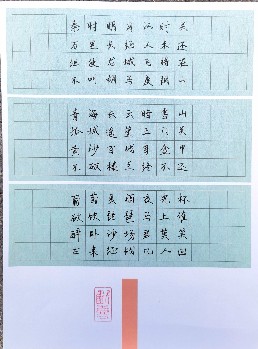 秦时明月汉时关
万里长征人未还
但使龙城飞将在
不叫胡马度阴山
青海长云暗雪山
孤城遥望玉门关
黄沙百战穿金甲
不破楼兰终不还
葡萄美酒夜光杯
欲饮琵琶马上催
醉卧沙场君莫笑
古来征战几人回